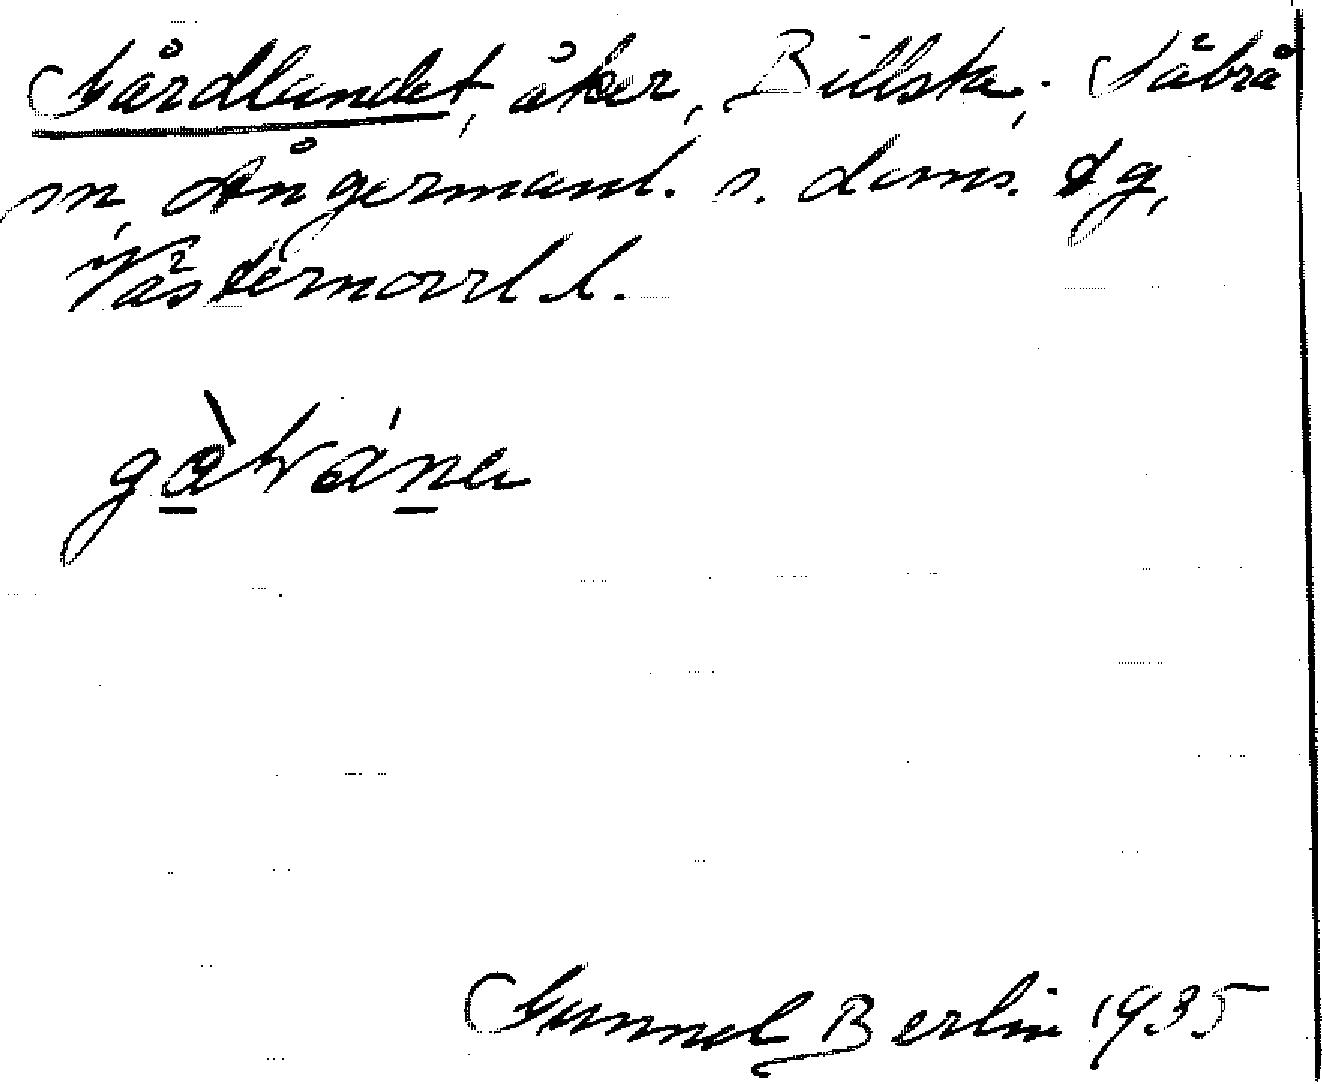 Gårdlandet, åker, Billsta, Säbrå
sn, Ångermanl. s. doms. dg,
Västernorrl. l.
Gunnel Berlin 1935